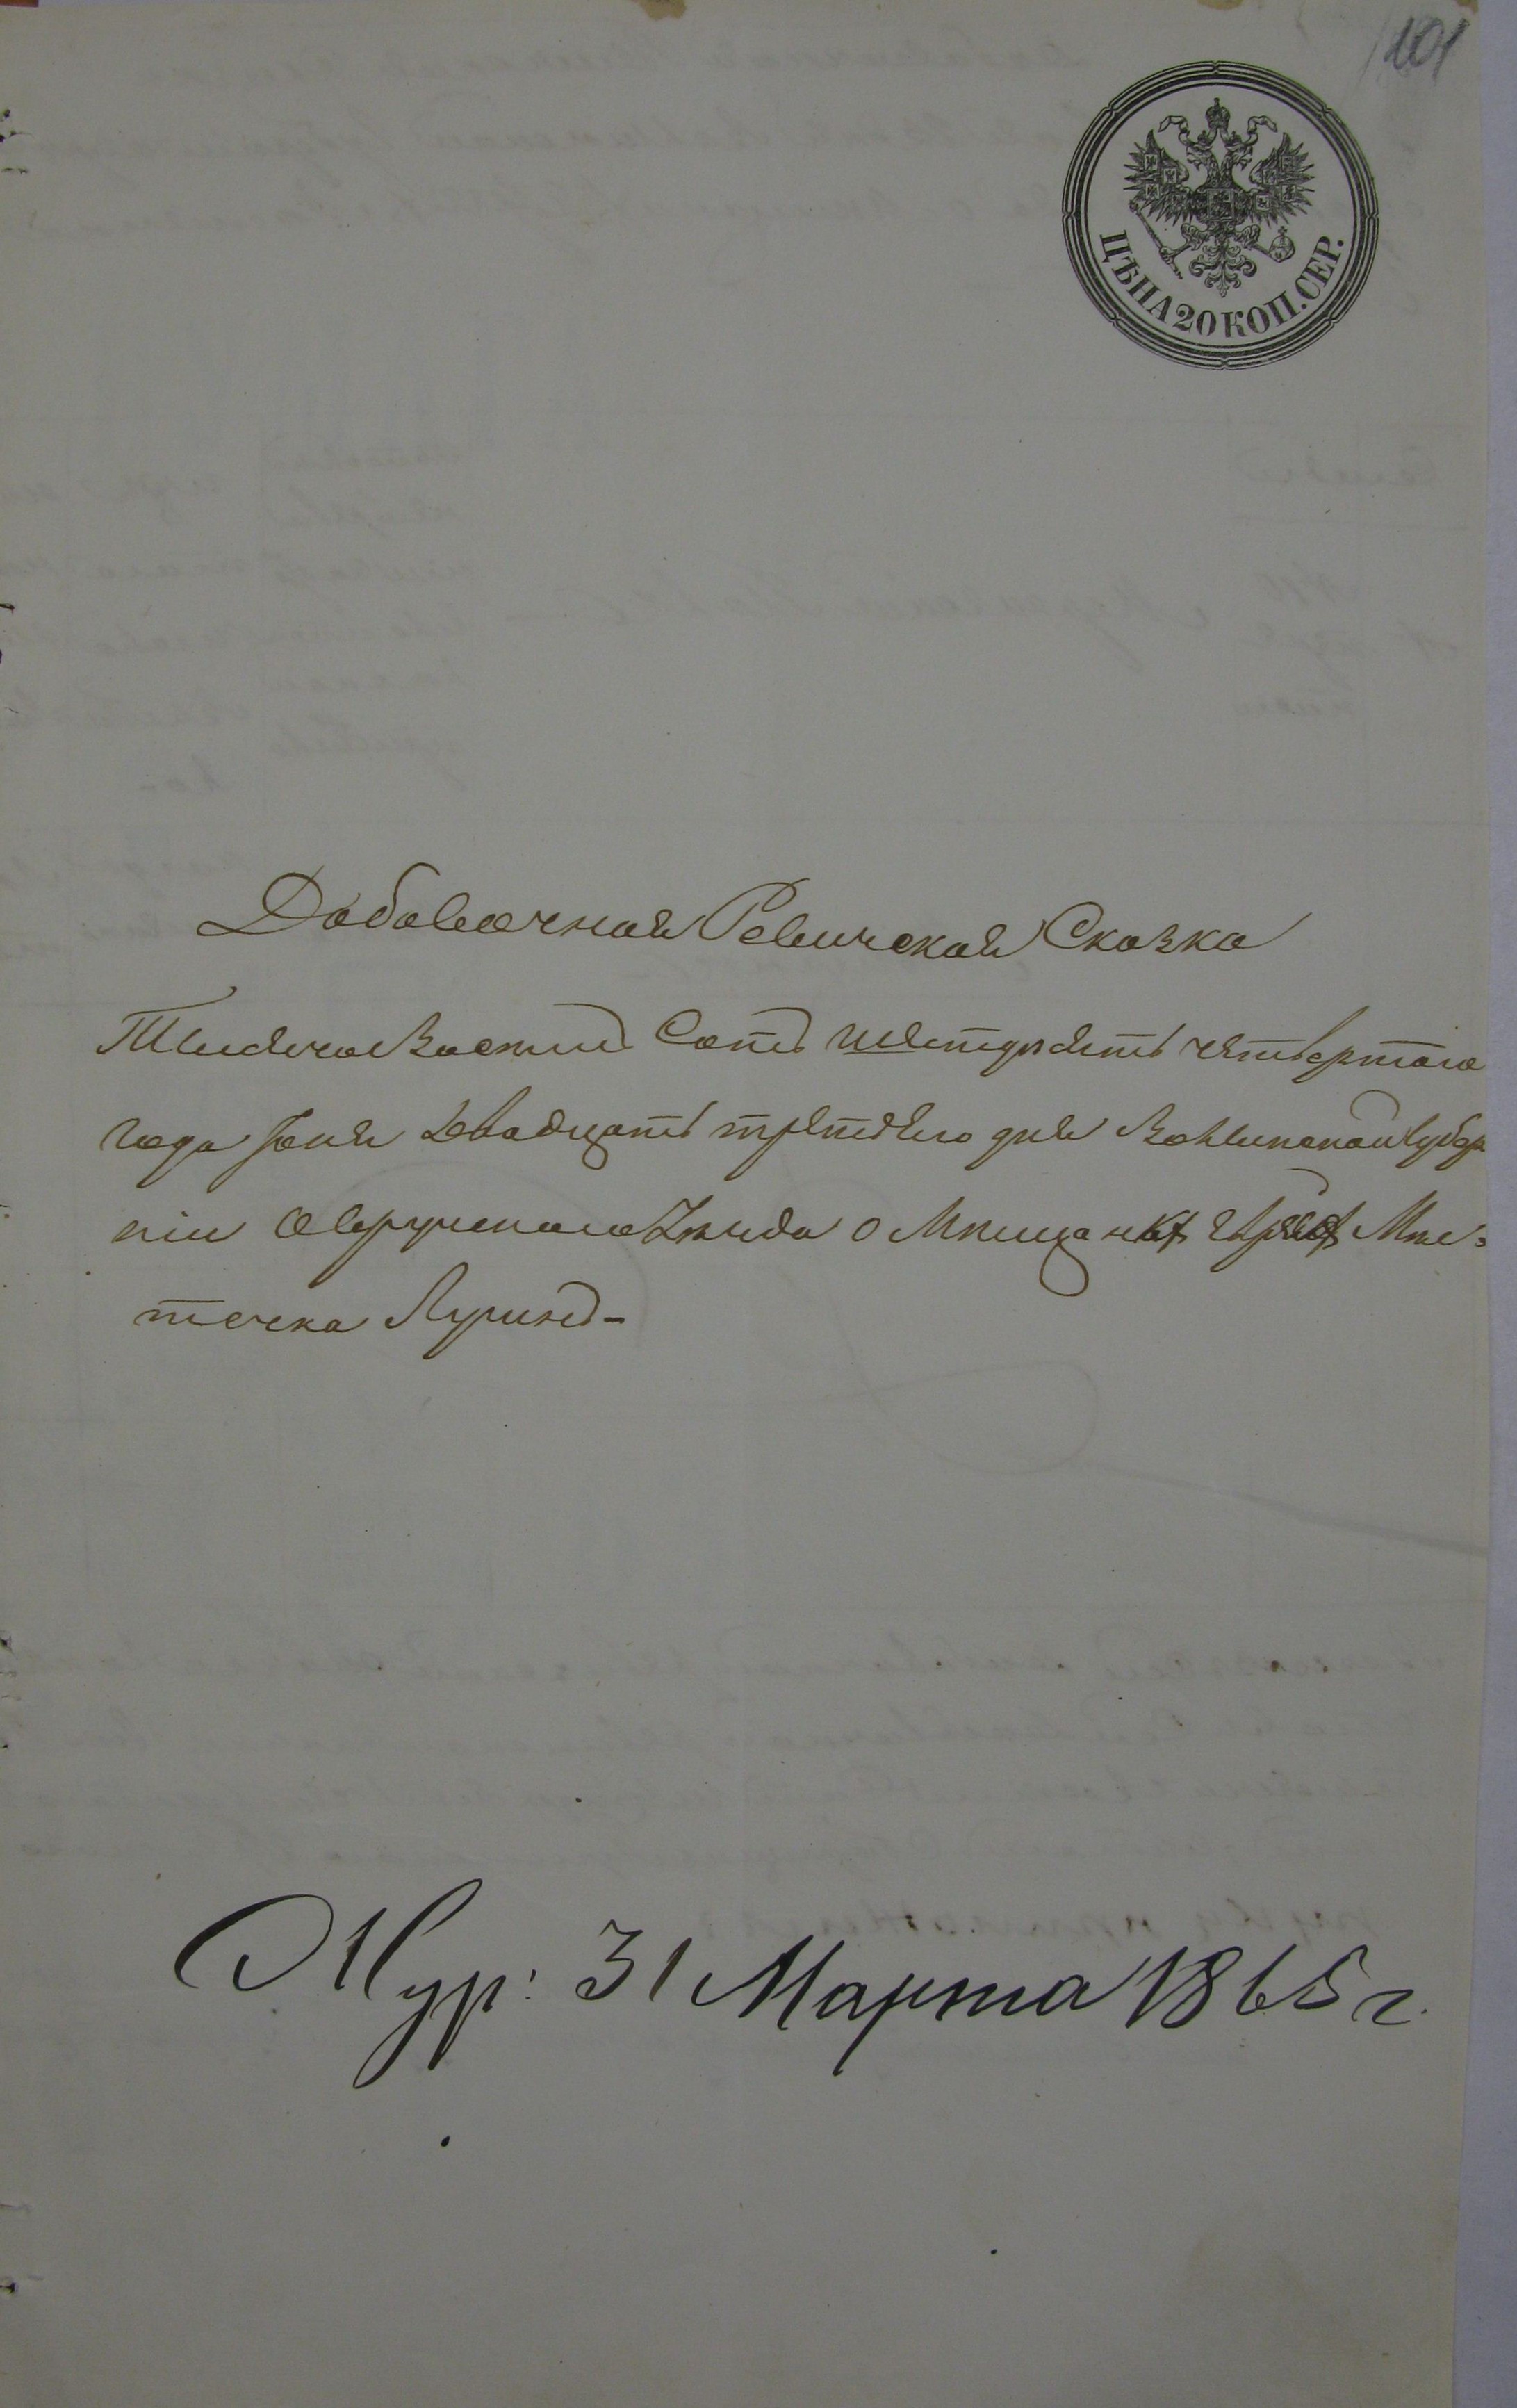 101
ЦѢНА 20 КОП. СЕР.
Добавочная Ревижская Сказка
Тысяча Восемъ Сотъ шестдѣсятъ четвертого
года Іюня Двадцать третьего дня Волынской Губер
ніи Овручскаго Уѣзда о Мѣщанахъ Евреяхъ Мѣс-
течка Лугинъ-
Жур: 31 Марта 1865 г.